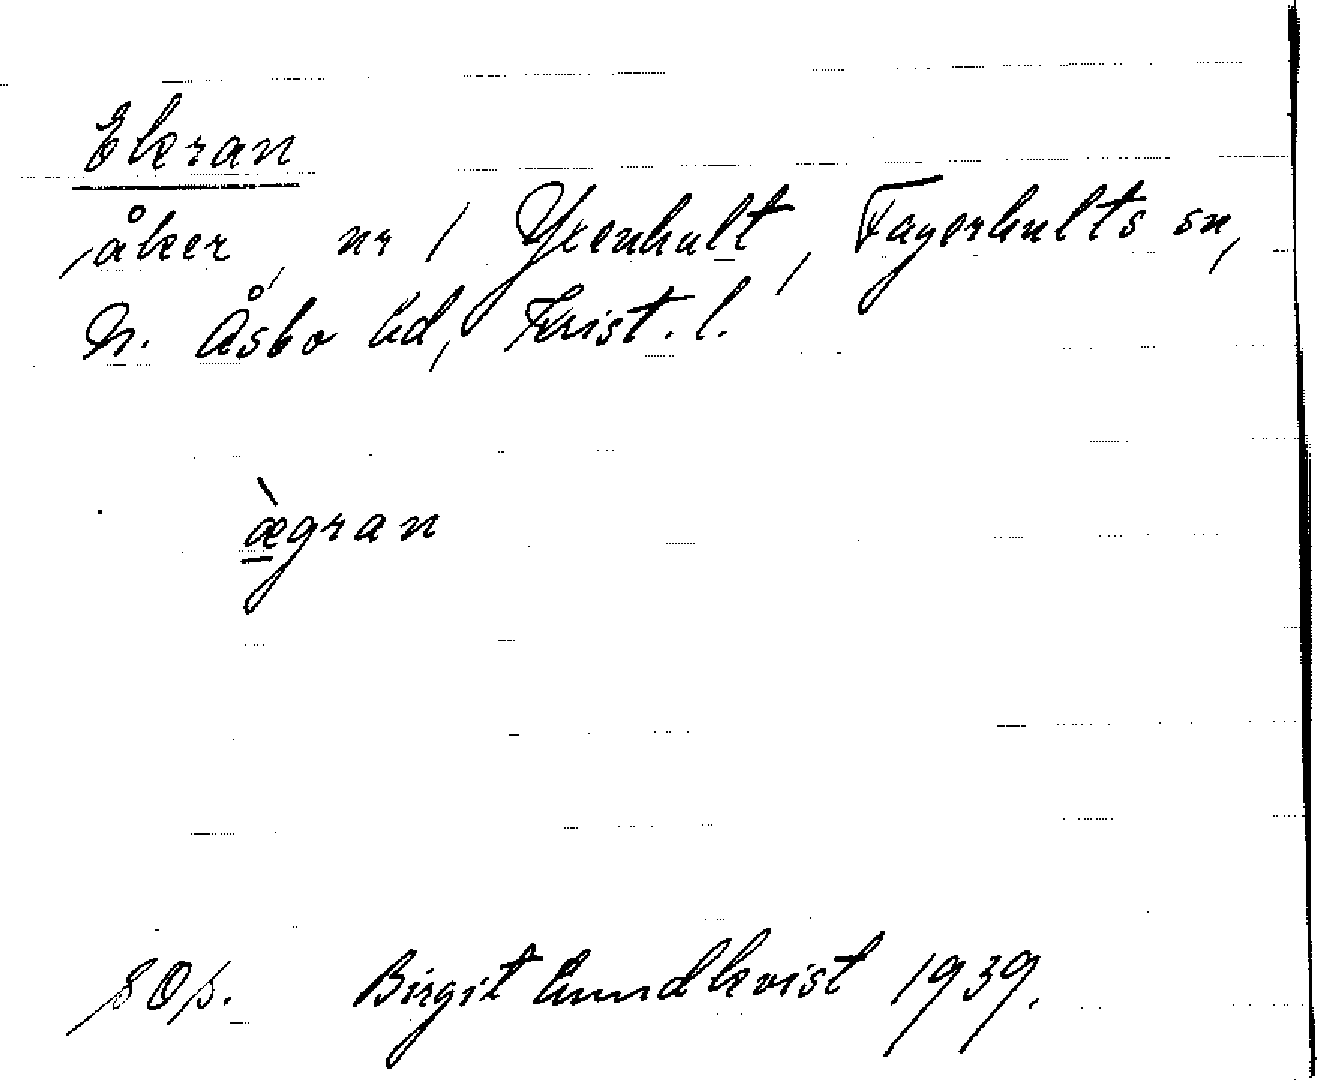 Ekran
åker, nr 1 Yxenhult, Fagerhults sn,
N. Åsbo hd, Krist. l.
æ̀gran
Birgit Lundkvist 1939.